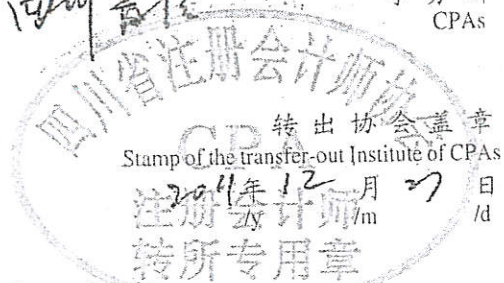 CPAs
四川省注册会计师协会
CPA
转出协会盖章
Stamp of the transfer-out Institute of CPAs
2011年12月27日
/y /m /d
注册会计师
转所专用章